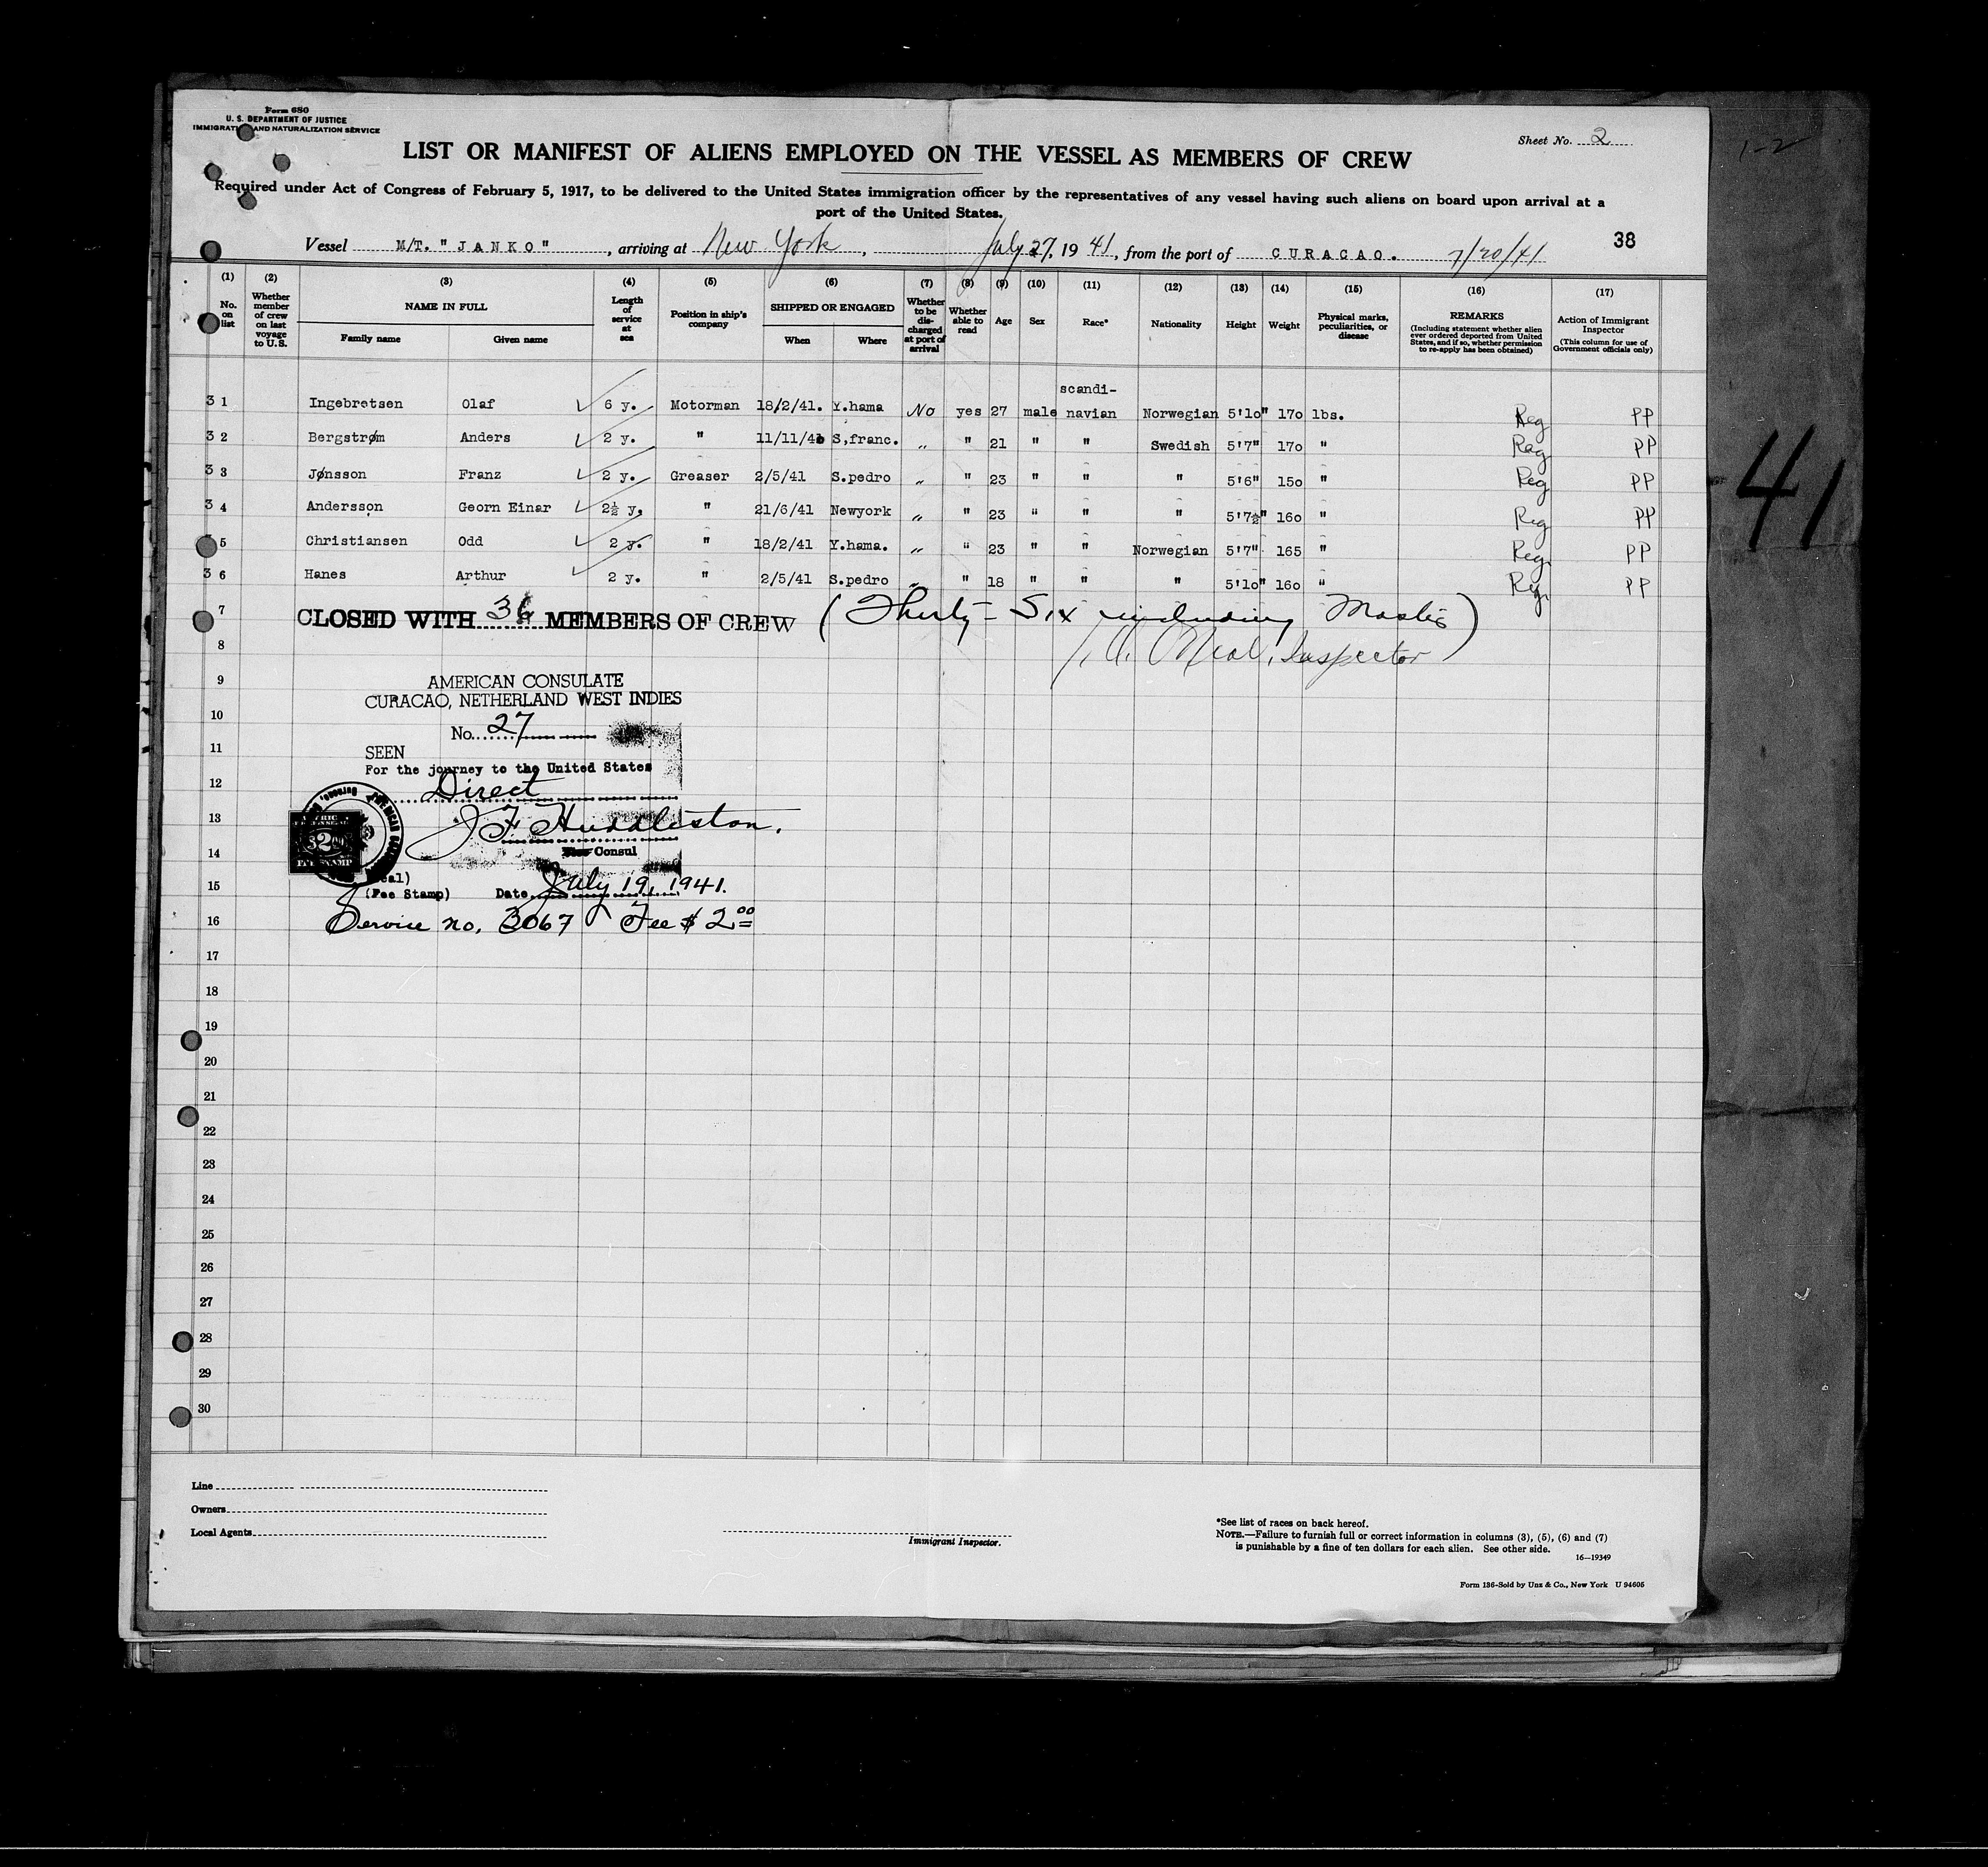 Form 680
U. S. DEPARTMENT OF JUSTICE
IMMIGRATION AND NATURALIZATION SERVICE
Sheet No. 2
1-2
LIST OR MANIFEST OF ALIENS EMPLOYED ON THE VESSEL AS MEMBERS OF CREW
Required under Act of Congress of February 5, 1917, to be delivered to the United States immigration officer by the representatives of any vessel having such aliens on board upon arrival at a
port of the United States.
38
Vessel M/T. "JANKO", arriving at New York, July 27, 1941, from the port of CURACAO. 7/20/41
(1) (2) (3) (4) (5) (6) (7) (8) (9) (10) (11) (12) (13) (14) (15) (16) (17)
No. on list Whether member of crew on last voyage to U.S. NAME IN FULL Family name Given name Length of service at sea Position in ship's company SHIPPED OR ENGAGED When Where Whether to be discharged at port of arrival Whether able to read Age Sex Race* Nationality Height Weight Physical marks, peculiarities, or disease REMARKS (Including statement whether alien ever ordered deported from United States, and if so, whether permission to re-apply has been obtained) Action of Immigrant Inspector (This column for use of Government officials only)
scandi-
31 Ingebretsen Olaf 6 y. Motorman 18/2/41. Y.hama No yes 27 male navian Norwegian 5'1o" 17o lbs. Reg PP
32 Bergstrøm Anders 2 y. " 11/11/40 S,franc. " " 21 " " Swedish 5'7" 17o " Reg PP
33 Jønsson Franz 2 y. Greaser 2/5/41 S.pedro " " 23 " " " 5'6" 15o " Reg PP
34 Andersson Georn Einar 2½ y. " 21/6/41 Newyork " " 23 " " " 5'7½" 16o " Reg PP
5 Christiansen Odd 2 y. " 18/2/41 Y.hama. " " 23 " " Norwegian 5'7" 165 " Reg PP
36 Hanes Arthur 2 y. " 2/5/41 S.pedro " " 18 " " " 5'1o" 16o " Reg PP
41
7 CLOSED WITH 36 MEMBERS OF CREW (Thirty-Six including Master)
8 O'Neal, Inspector
9 AMERICAN CONSULATE
CURACAO, NETHERLAND WEST INDIES
10 No. 27
11 SEEN
For the journey to the United States
12 Direct
13 J F Huddleston.
14 Vice Consul
(Seal)
15 (Fee Stamp) Date July 19, 1941.
16 Service no. 3067 Fee $ 2.00
17
18
19
20
21
22
23
24
25
26
27
28
29
30
Line
Owners
Local Agents
Immigrant Inspector.
*See list of races on back hereof.
NOTE.—Failure to furnish full or correct information in columns (3), (5), (6) and (7)
is punishable by a fine of ten dollars for each alien. See other side.
16—19349
Form 136-Sold by Unz & Co., New York U 94605